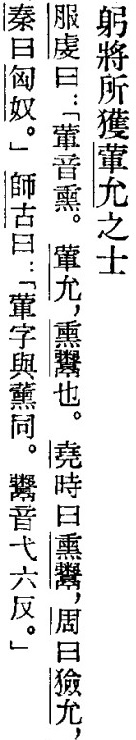 躬將所獲葷允之士
服虔曰：「葷音熏。葷允，熏鬻也。堯時曰熏鬻，周曰獫允，
秦曰匈奴。」師古曰：「葷字與薰同。鬻音弋六反。」